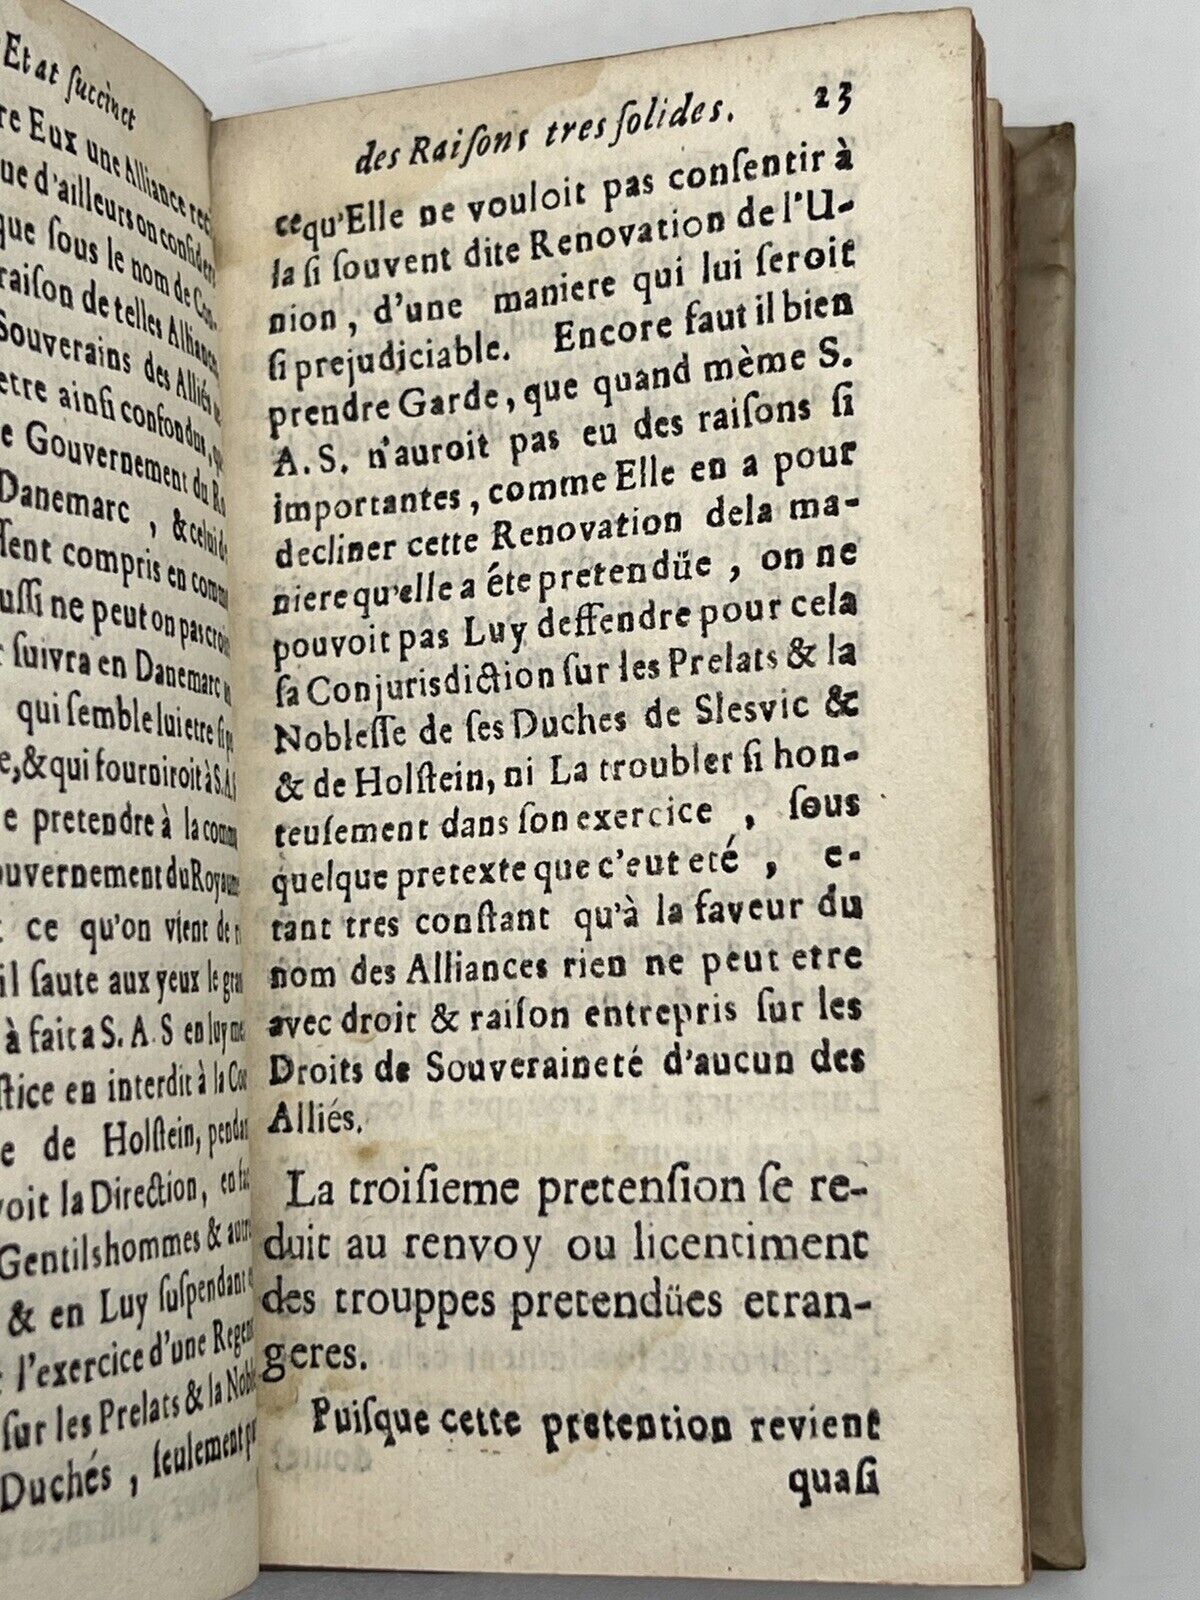 Etat succinct
re Eux une Alliance
ue d'ailleurs on
que sous le nom de Con-
raison de telles Alliances
Souverains des Alliés
etre ainsi confondus,
e Gouvernement du
Danemarc, & celui de
compris en
ussi ne peut on pas
suivra en Danemarc
qui semble lui etre si
e, & qui fourniroit à S.A.S
e pretendre à la
ouvernement du Royaume
ce qu'on vient de
il saute aux yeux le
à fait a S. A. S en luy
stice en interdit à la
e de Holstein,
voit la Direction, en
Gentilshommes &
& en Luy suspendant
l'exercice d'une
sur les Prelats & la
Duchés, seulement
des Raisons tres solides. 23
ce qu'Elle ne vouloit pas consentir à
la si souvent dite Renovation de l'U-
nion, d'une maniere qui lui seroit
si prejudiciable. Encore faut il bien
prendre Garde, que quand mème S.
A. S. n'auroit pas eu des raisons si
importantes, comme Elle en a pour
decliner cette Renovation dela ma-
niere qu'elle a éte pretendüe, on ne
pouvoit pas Luy deffendre pour cela
sa Conjurisdiction sur les Prelats & la
Noblesse de ses Duches de Slesvic &
& de Holstein, ni La troubler si hon-
teusement dans son exercice, sous
quelque pretexte que c'eut eté, e-
tant tres constant qu'à la faveur du
nom des Alliances rien ne peut etre
avec droit & raison entrepris sur les
Droits de Souveraineté d'aucun des
Alliés.
La troisieme pretension se re-
duit au renvoy ou licentiment
des trouppes pretendües etran-
geres.
Puisque cette pretention revient
quasi